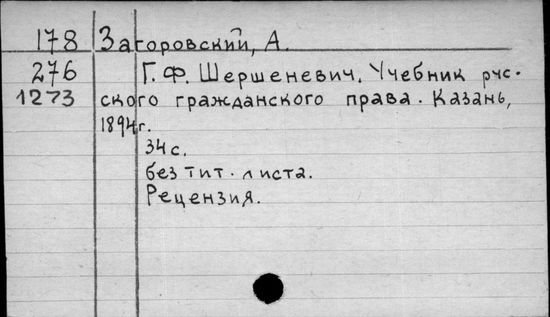 178 Загоровский, А.
276 Г. Ф. Шершеневич. Учебник рус-
1273 ского гражданского права. Казань,
1894г.
34 с.
без тит. листа.
Рецензия.